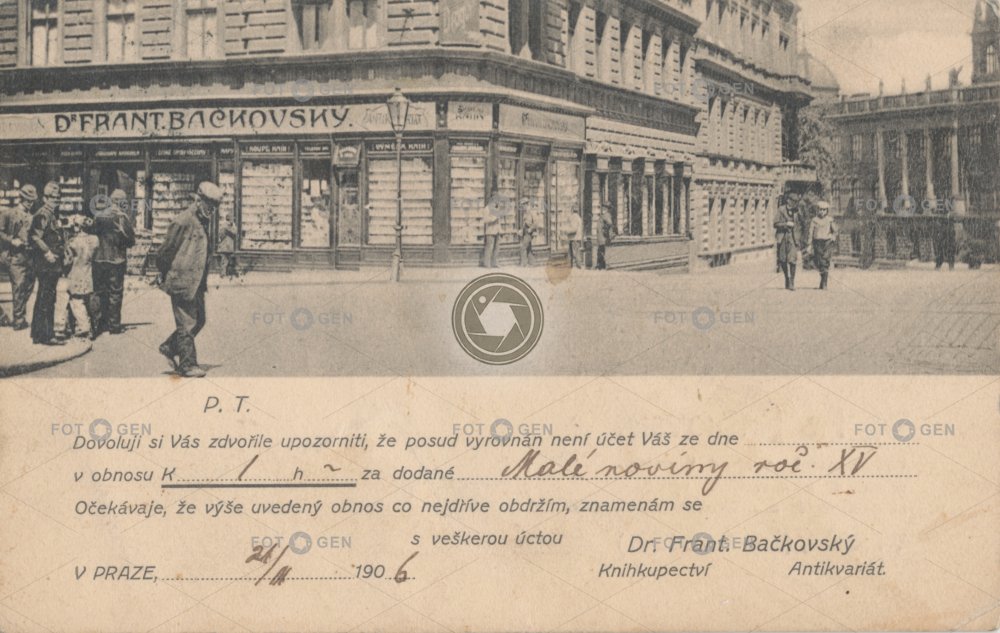 Dr. FRANT. BAČKOVSKÝ.
KOUPĚ KNIH
VÝMĚNA KNIH
P. T.
Dovoluji si Vás zdvořile upozorniti, že posud vyrovnán není účet Váš ze dne
v obnosu K 1 h ~ za dodané Malé noviny roč. XV
Očekávaje, že výše uvedený obnos co nejdříve obdržím, znamenám se
s veškerou úctou
Dr. Frant. Bačkovský
Knihkupectví Antikvariát.
V PRAZE, 21/11 1906
FOTOGEN